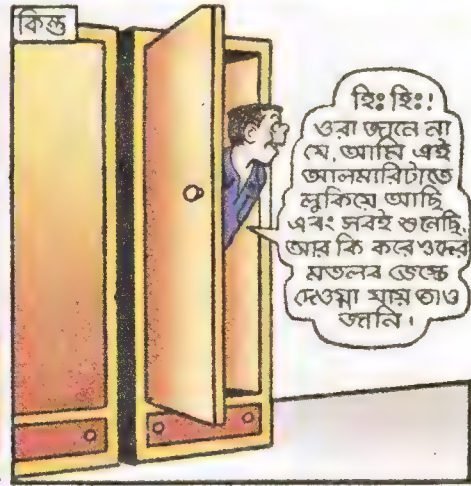 কিন্তু
হিঃ হিঃ!
ওরা জানে না
যে, আমি এই
আলমারিটাতে
লুকিয়ে আছি
এবং সবই শুনেছি,
আর কি করে ওদের
মতলব ভেস্তে
দেওয়া যায় তাও
জানি।